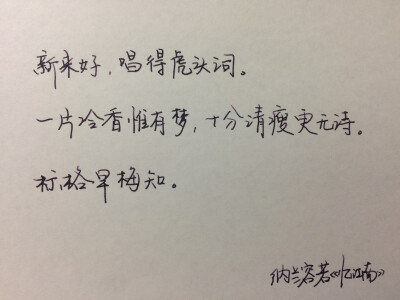 新来好，唱得虎头词。
一片冷香惟有梦，十分清瘦更无诗。
标格早梅知。
纳兰容若《忆江南》